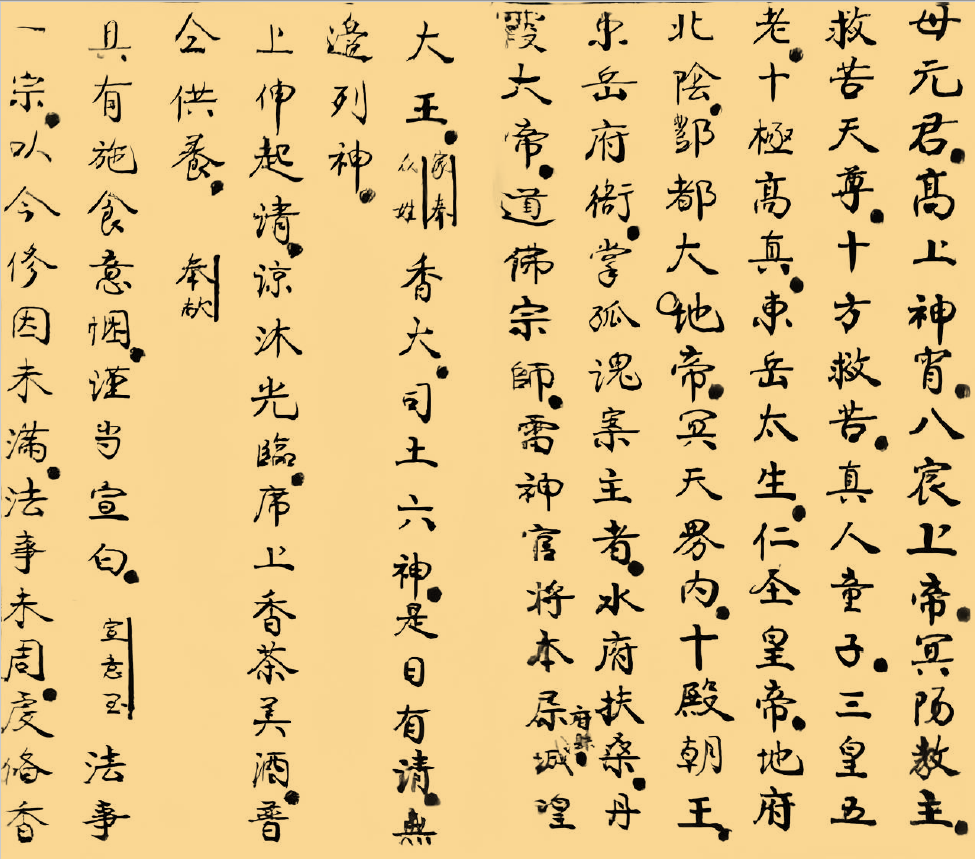 母元君高上神霄八宸上帝冥阳教主
救苦天尊十方救苦真人童子三皇五
老十極高真東岳太生仁圣皇帝地府
北陰酆都大地帝冥天界内十殿朝王
東岳府衙掌孤魂案主者水府扶桑丹
霞大帝道佛宗師雷神官将本县城隍
大王
香火司土六神是日有請無
邉列神
上伸起請諒沐光臨席上香茶美酒普
仝供養
奉献
具有施食意悃謹当宣白
宣意
法事
一宗以今修因未滿法事未周虔俻香